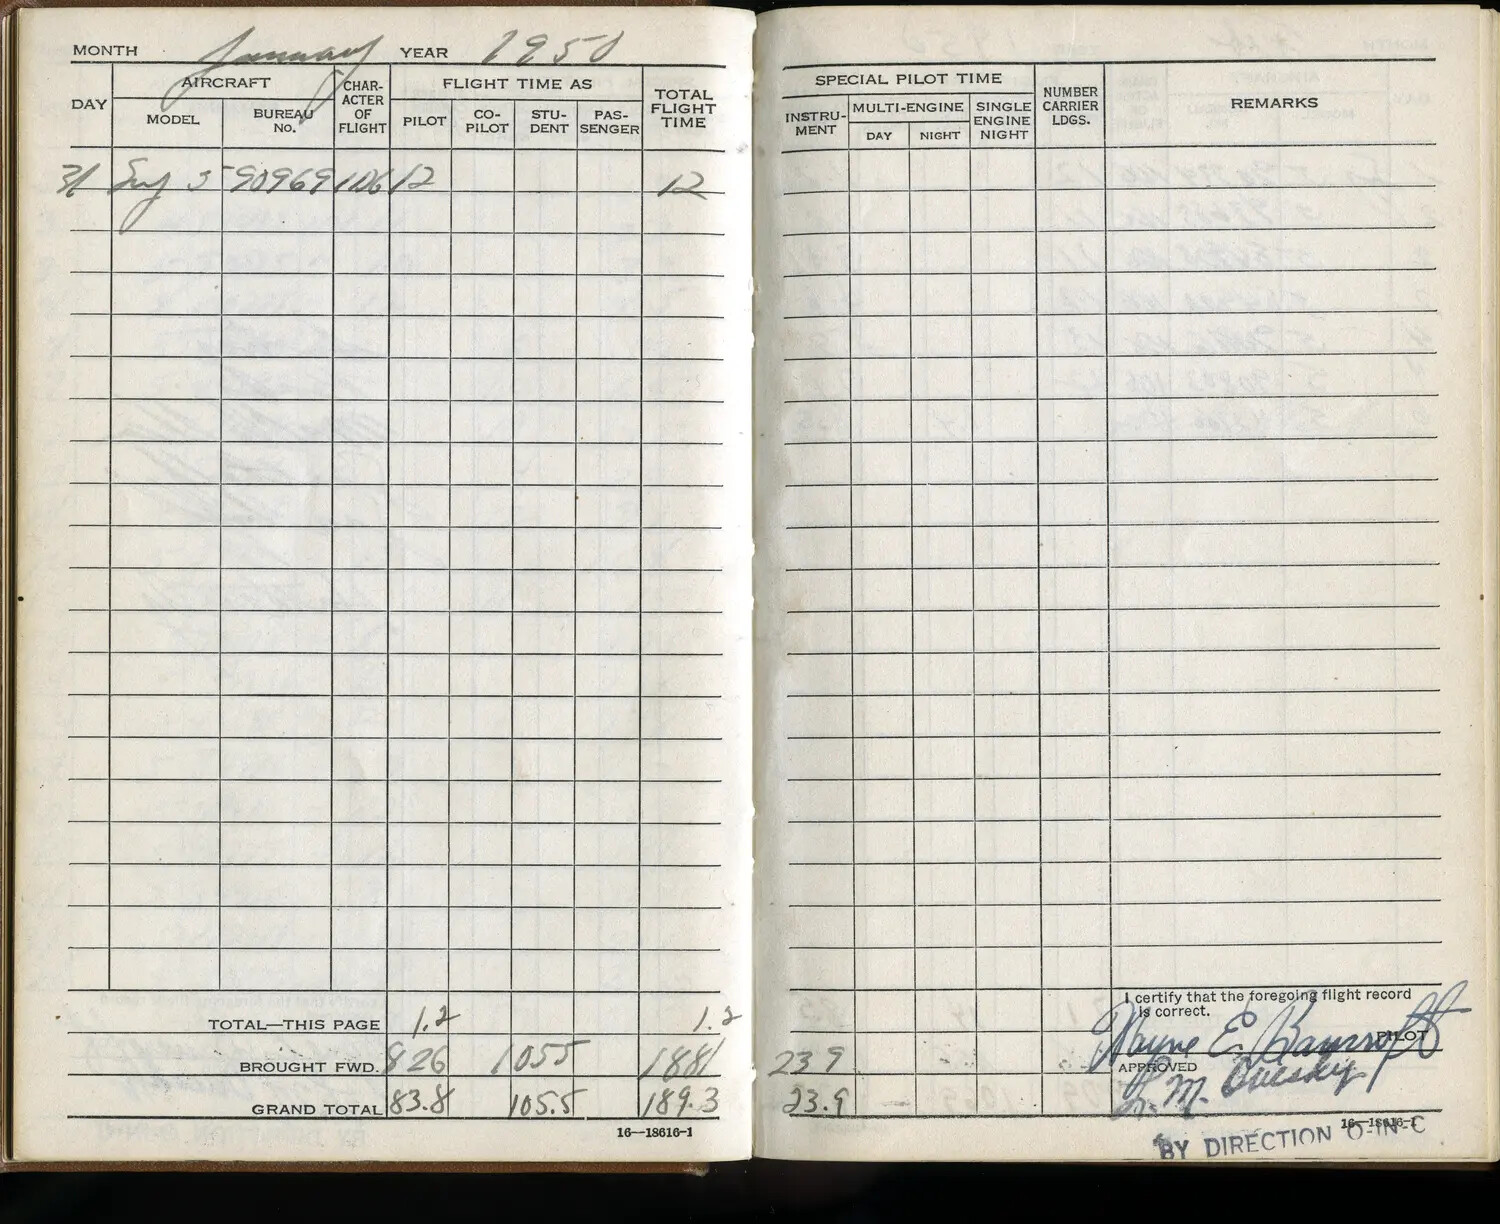 MONTH January YEAR 1950
DAY AIRCRAFT CHARACTER OF FLIGHT FLIGHT TIME AS TOTAL FLIGHT TIME
MODEL BUREAU No. PILOT CO-PILOT STU-DENT PAS-SENGER
31 Snj 5 90969 106 12 12
TOTAL—THIS PAGE 1.2 1.2
BROUGHT FWD. 826 1055 1881
GRAND TOTAL 83.8 105.5 189.3
16—18616-1
SPECIAL PILOT TIME NUMBER CARRIER LDGS. REMARKS
INSTRU-MENT MULTI-ENGINE SINGLE ENGINE NIGHT
DAY NIGHT
I certify that the foregoing flight record
is correct.
Wayne E. Bancroft PILOT
239
APPROVED
23.9
L. M.
16—18616-1
BY DIRECTION O-IN-C